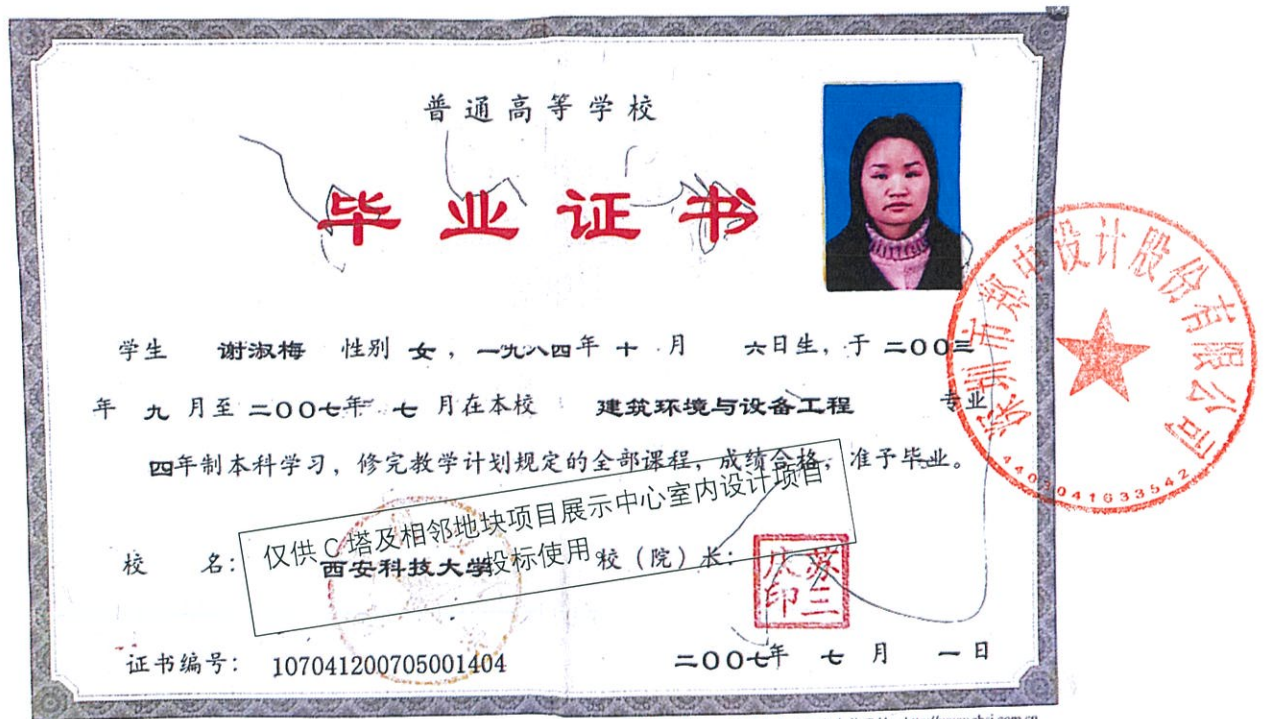 普通高等学校
毕业证书
学生 谢淑梅 性别 女，一九八四年 十 月 六日生，于 二〇〇三
年 九 月至 二〇〇七年 七 月在本校 建筑环境与设备工程 专业
四年制本科学习，修完教学计划规定的全部课程，成绩合格，准予毕业。
仅供C塔及相邻地块项目展示中心室内设计项目
投标使用。
校 名： 西安科技大学 校（院）长：
苏三庆印
证书编号： 107041200705001404 二〇〇七年 七 月 一 日
深圳市郑中设计股份有限公司
4403041633542